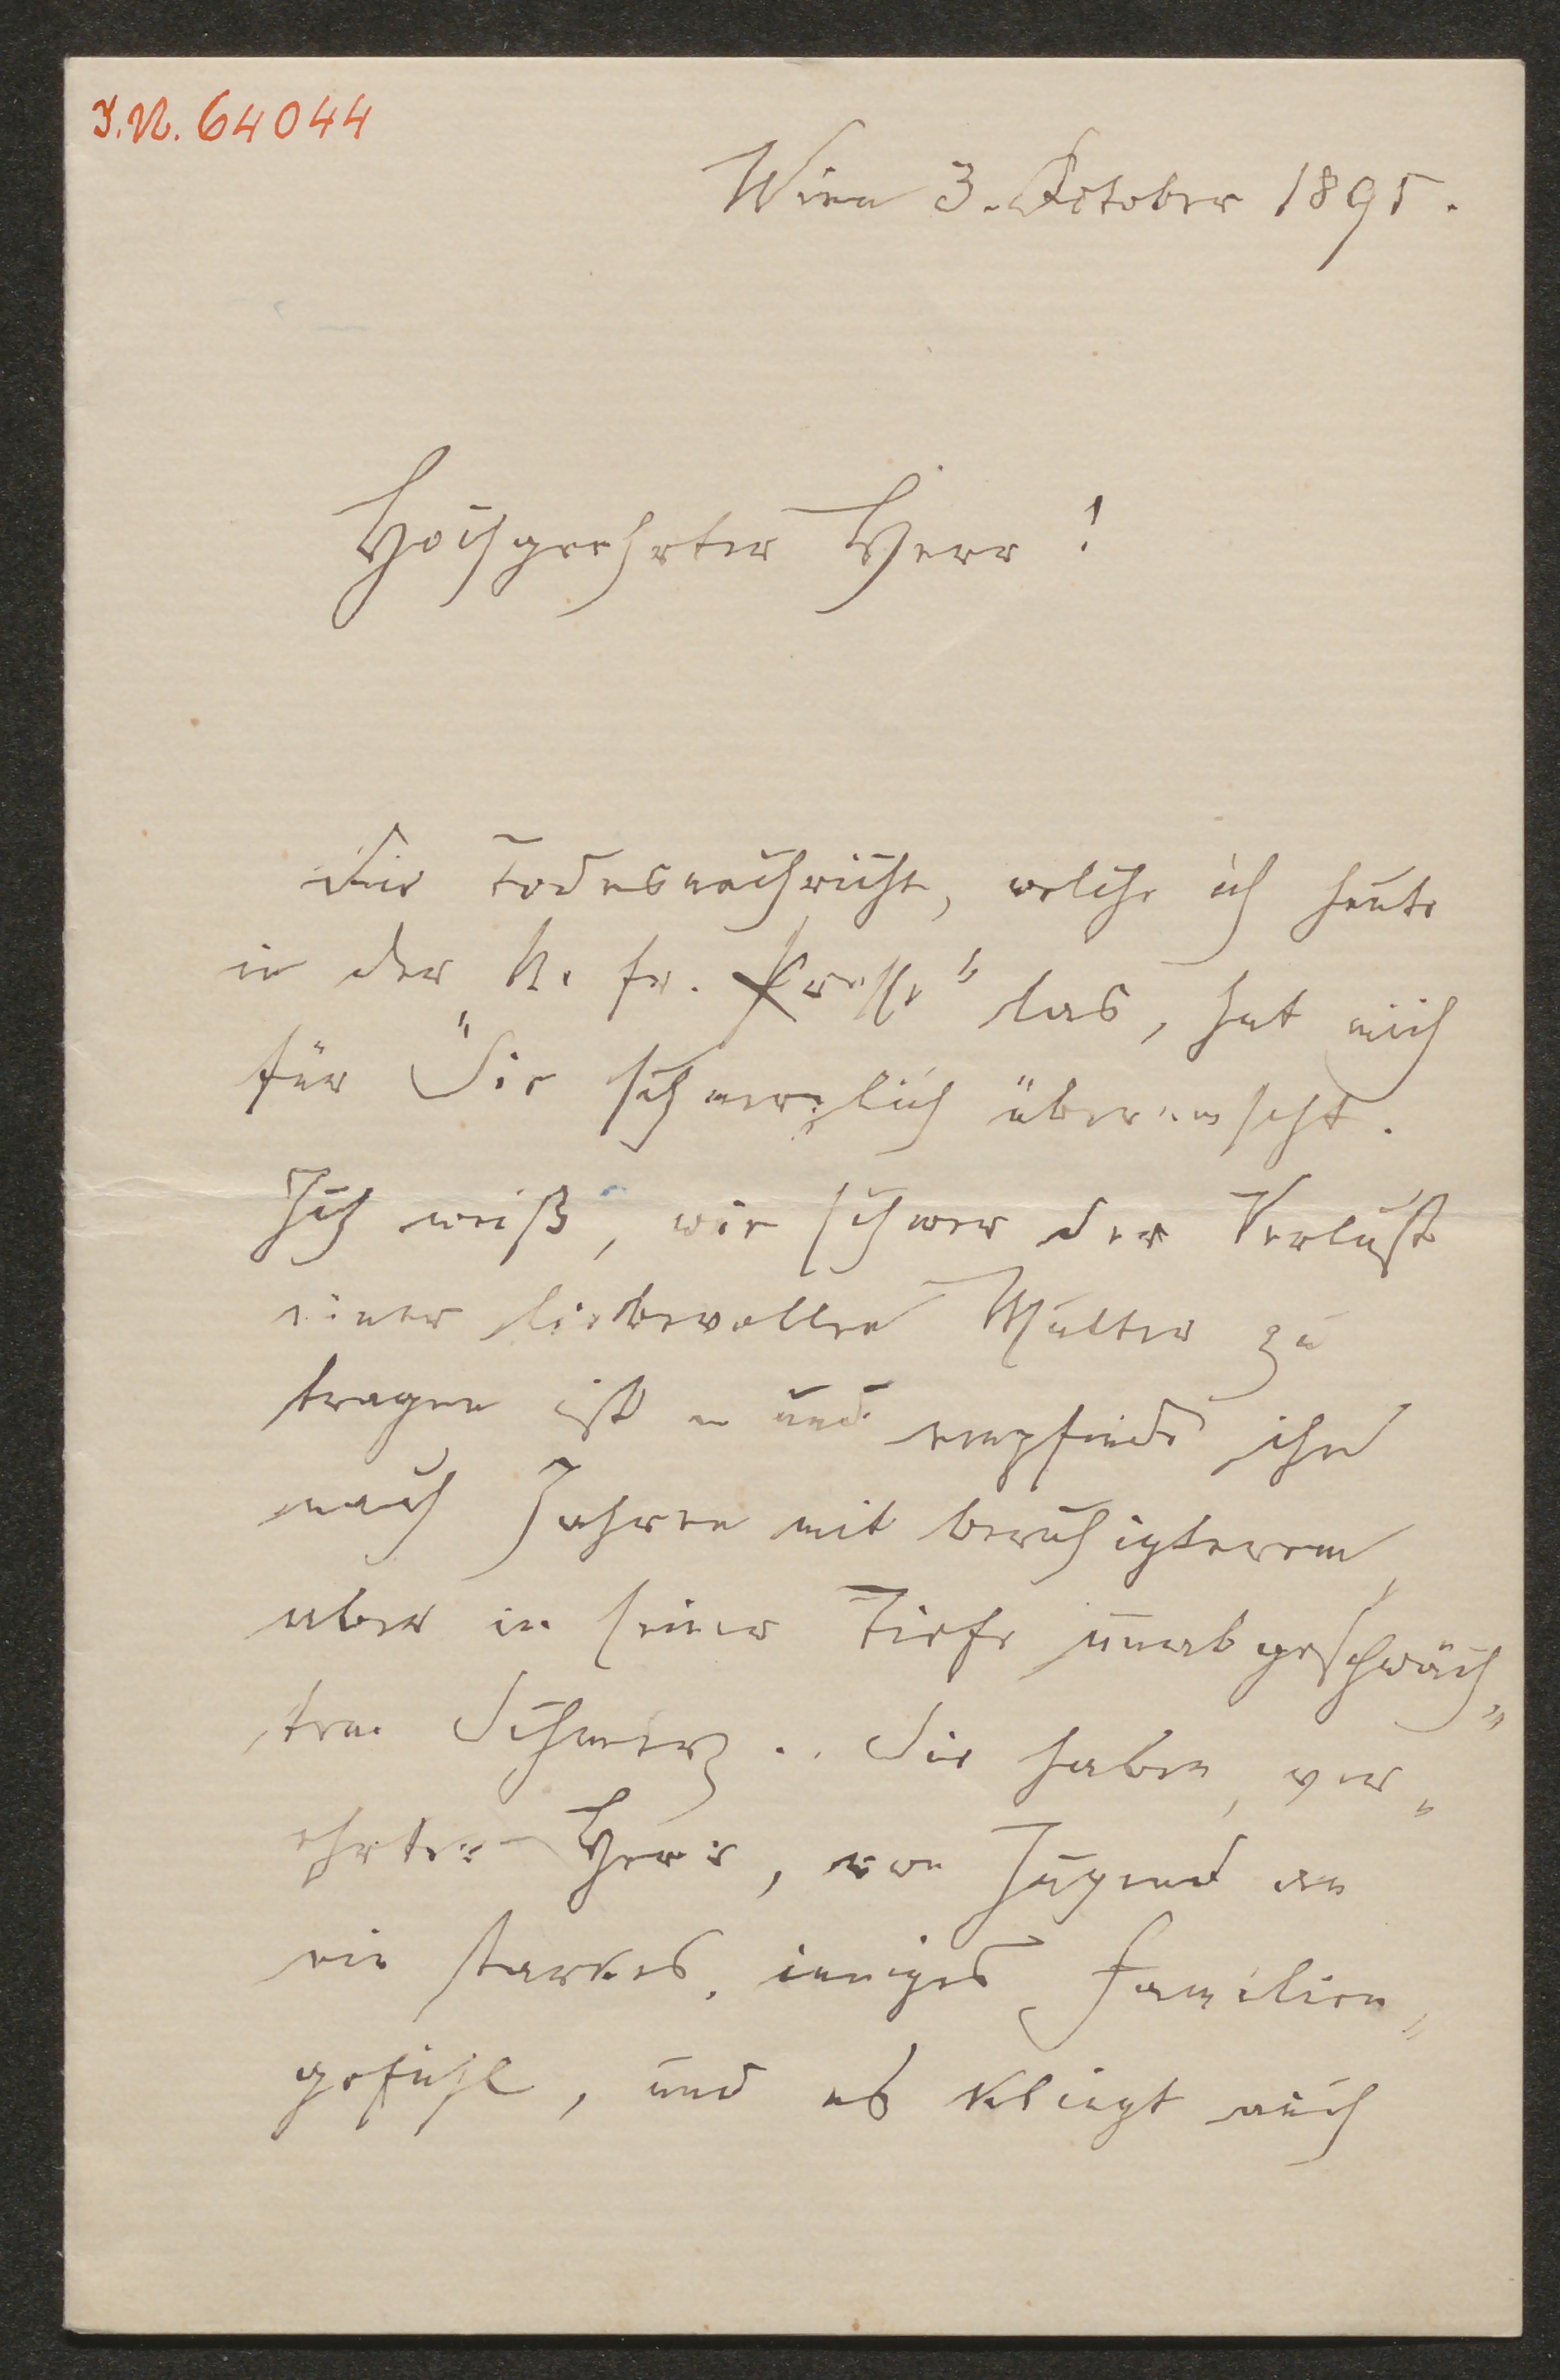 I.N. 64044
Wien 3. October 1895.
Hochgeehrter Herr!
Die Todesnachricht, welche ich heute
in der „N. fr. Presse“ las, hat mich
für Sie schmerzlich überrascht.
Ich weiß, wie schwer der Verlust
einer liebevollen Mutter zu
tragen ist und empfinde ihn
nach Jahren mit beruhigterem,
aber in seiner Tiefe unabgeschwäch„
ten Schmerz.. Sie haben, ver„
ehrter Herr, von Jugend an
ein starkes, inniges Familien„
gefühl, und es klingt auch